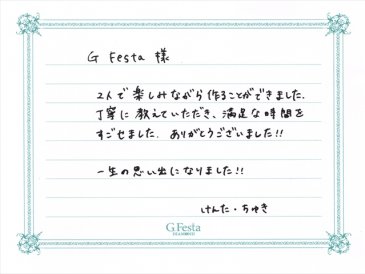 G Festa 様
2人で楽しみながら作ることができました.
丁寧に教えていただき、満足な時間を
すごせました. ありがとうございました!!
一生の思い出になりました!!
けんた・ちゆき
G.Festa
DIAMOND